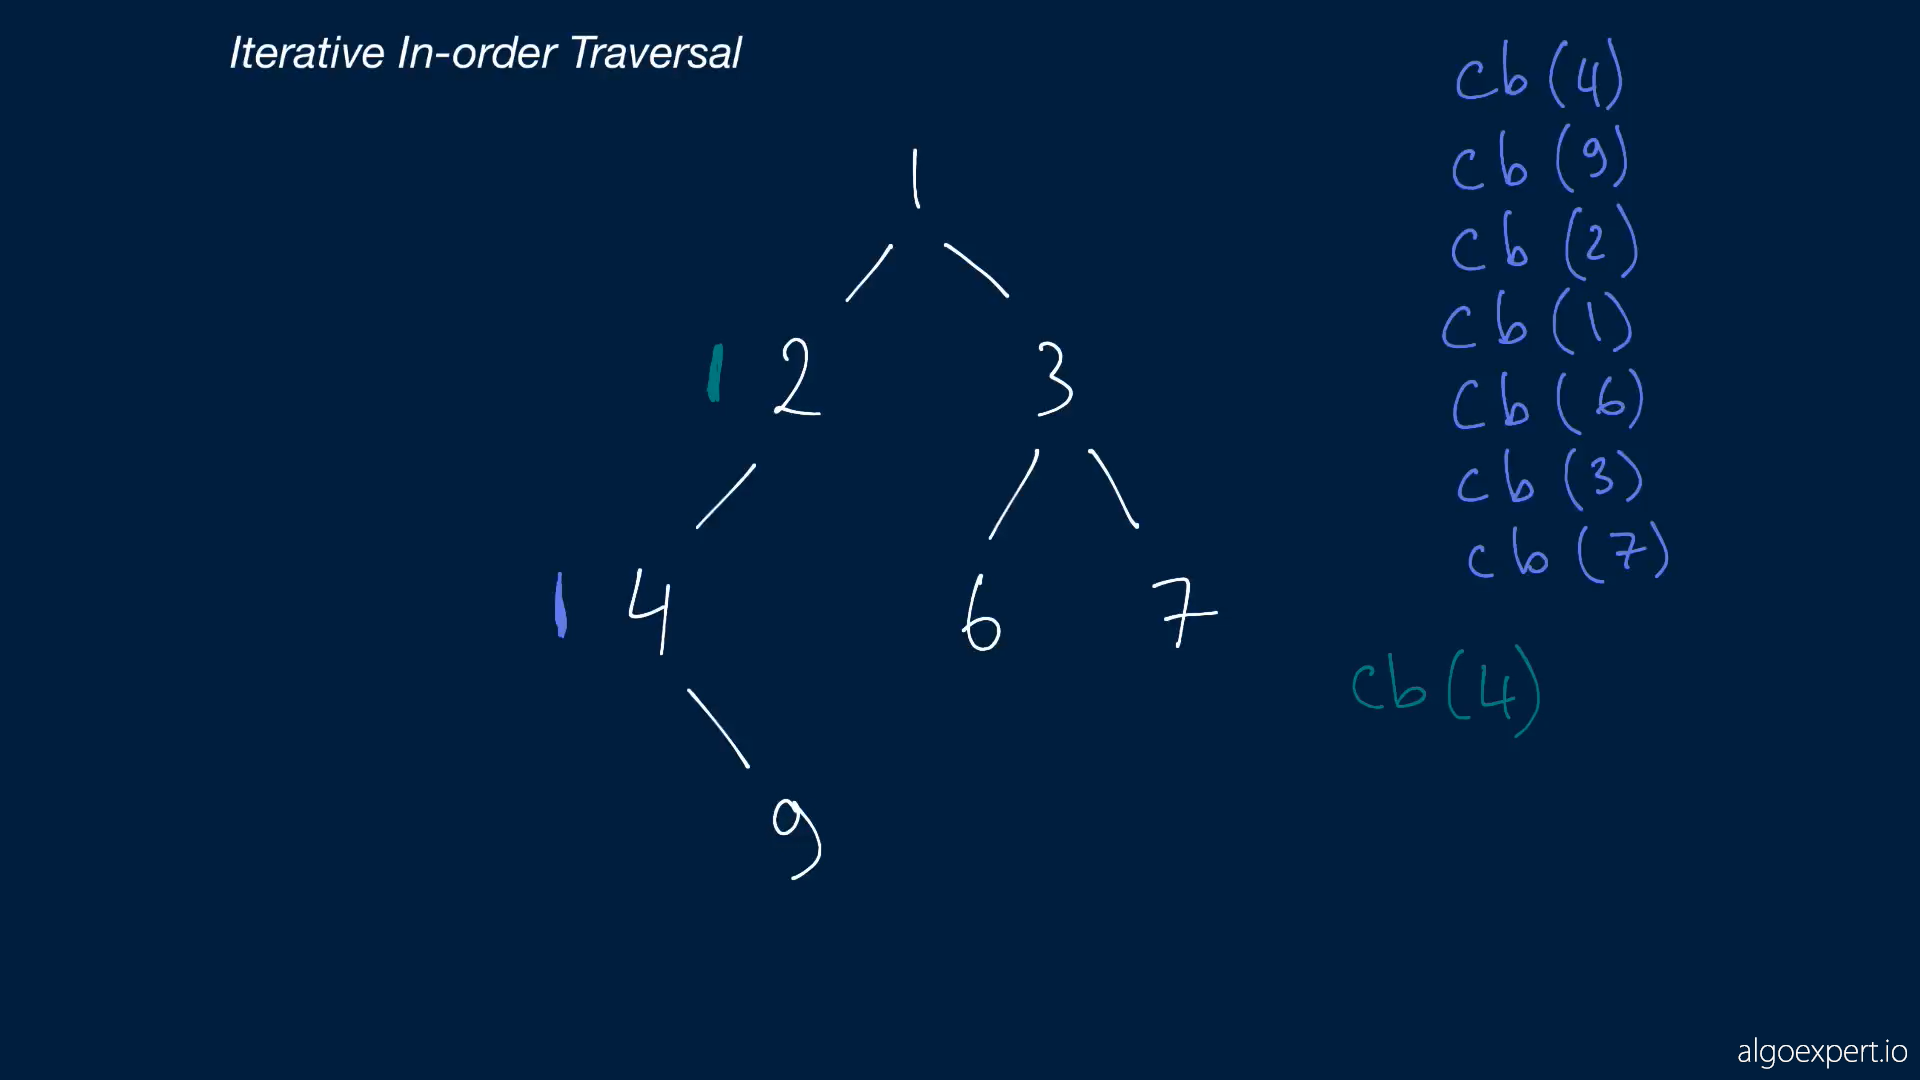 Iterative In-order Traversal
1
2 3
4 6 7
9
cb (4)
cb (9)
cb (2)
cb (1)
cb (6)
cb (3)
cb (7)
cb (4)
algoexpert.io